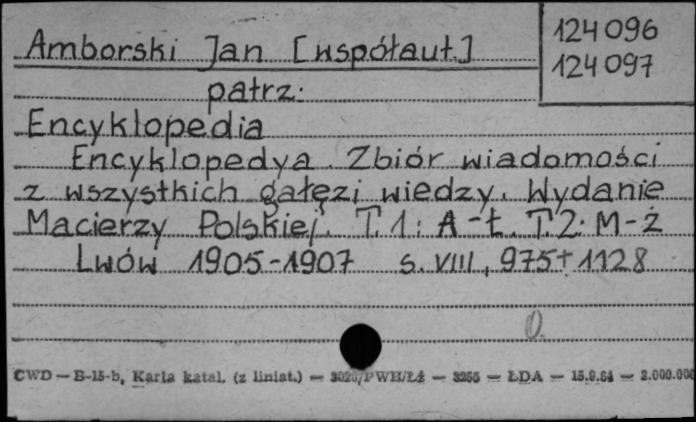 Amborski Jan [współaut.]
124 096
124 097
patrz:
Encyklopedia
Encyklopedya. Zbiór wiadomości
z wszystkich gałęzi wiedzy. Wydanie
Macierzy Polskiej. T. 1: A-Ł. T. 2: M-Ż
Lwów 1905-1907 s. VIII, 975+1128
CWD — B-15-b, Karta katal. (z liniat.) — PWH/Łź — — ŁDA — 15.9.64 — 2.000.000